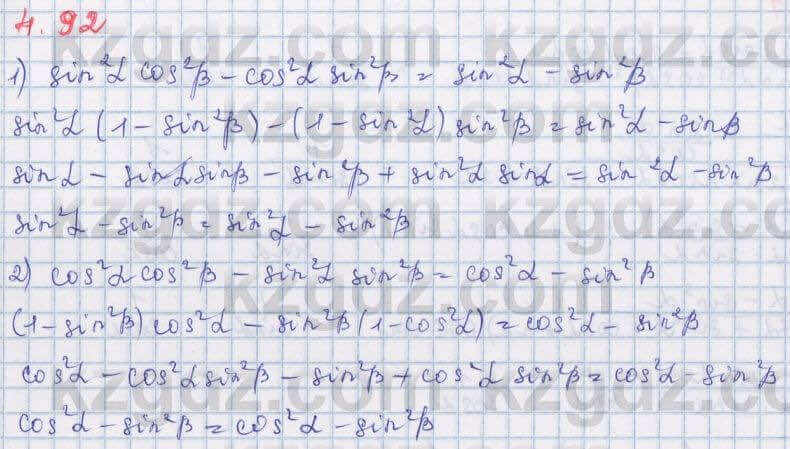 4.92
1) sin²α cos²β – cos²α sin²β = sin²α – sin²β
sin²α (1 – sin²β) – (1 – sin²α) sin²β = sin²α – sinβ
sinα – sinα sinβ – sin²β + sin²α sinα = sin²α – sin²β
sin²α – sin²β = sin²α – sin²β
2) cos²α cos²β – sin²α sin²β = cos²α – sin²β
(1 – sin²β) cos²α – sin²β (1 – cos²α) = cos²α – sin²β
cos²α – cos²α sin²β – sin²β + cos²α sin²β = cos²α – sin²β
cos²α – sin²β = cos²α – sin²β
kzgdz.com
kzgdz.com
kzgdz.com
kzgdz.com
kzgdz.com